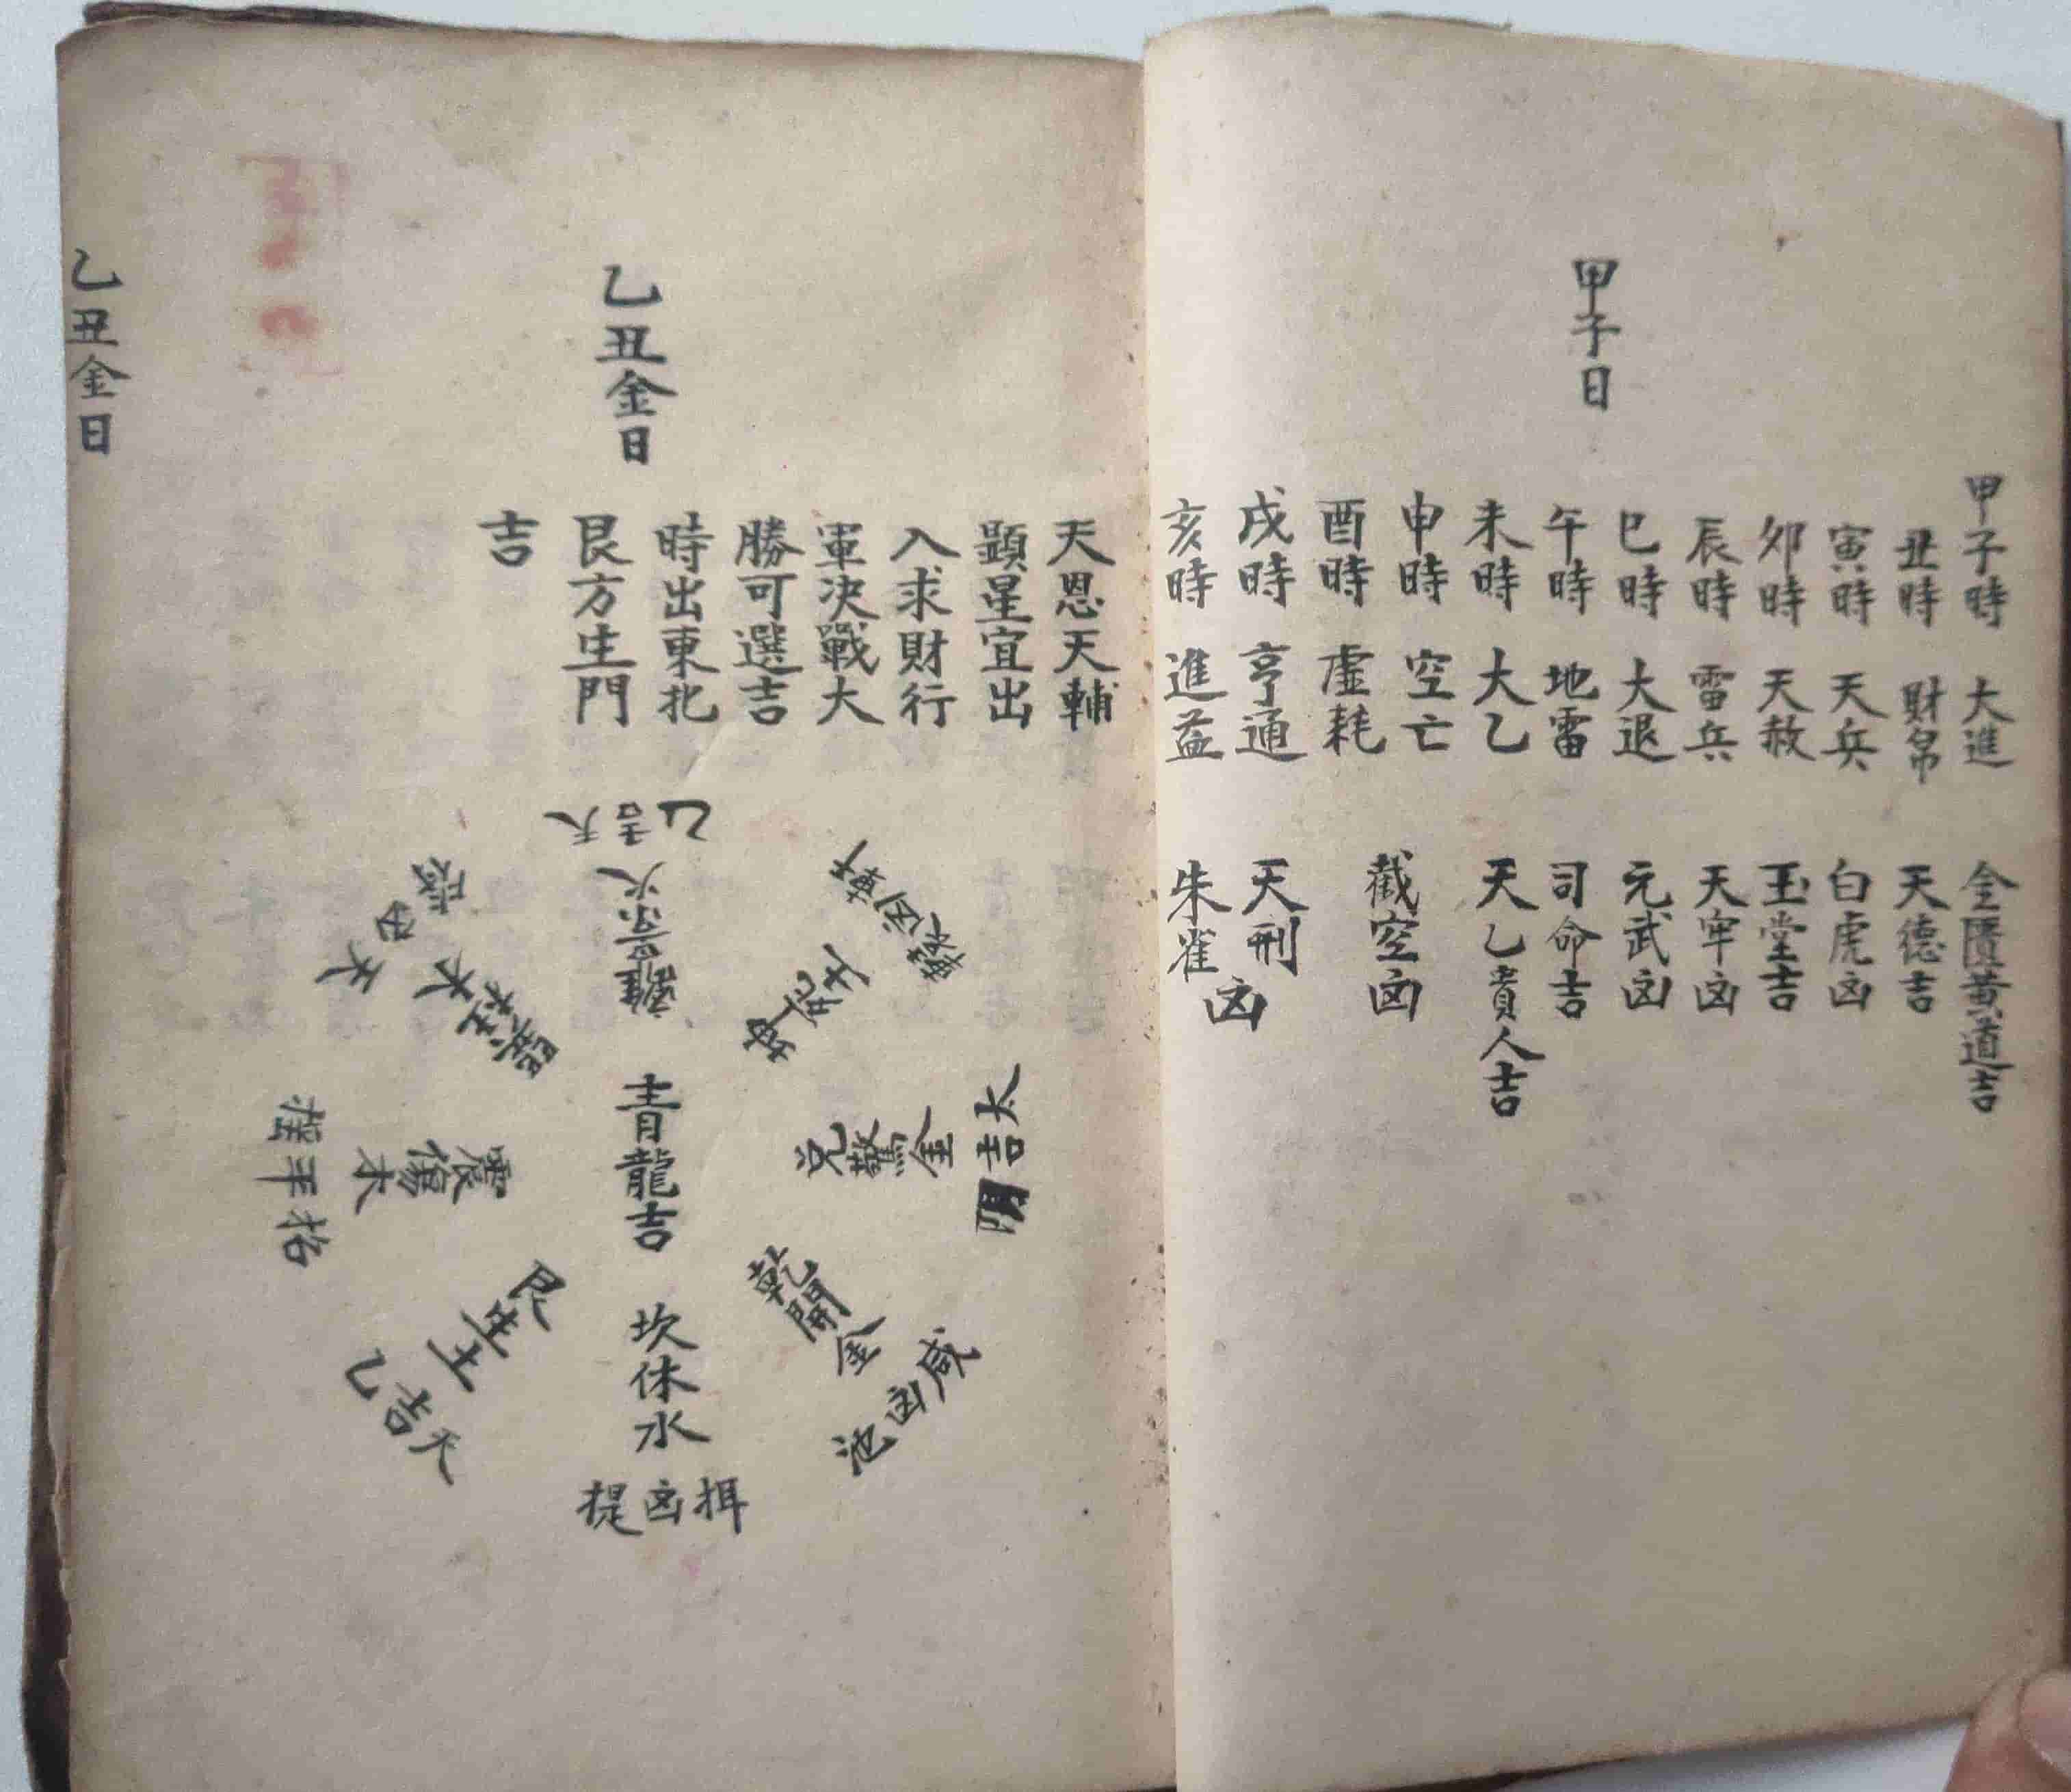 甲子日
甲子時 大進 金匱黃道吉
丑時 財帛 天德吉
寅時 天兵 白虎凶
卯時 天赦 玉堂吉
辰時 雷兵 天牢凶
巳時 大退 元武凶
午時 地雷 司命吉
未時 大乙 天乙貴人吉
申時 空亡
酉時 虛耗
截空凶
戌時 亨通 天刑
亥時 進益 朱雀
凶
乙丑金日
天恩天輔
顯星宜出
入求財行
軍決戰大
勝可選吉
時出東北
艮方生門
吉
乙吉天
離景火
坤死土
軒凶轅
兌驚金
太吉陰
乾開金
咸凶池
青龍吉
坎休水
提凶
艮生土
天吉乙
震傷木
招平搖
巽杜木
天
乙丑金日